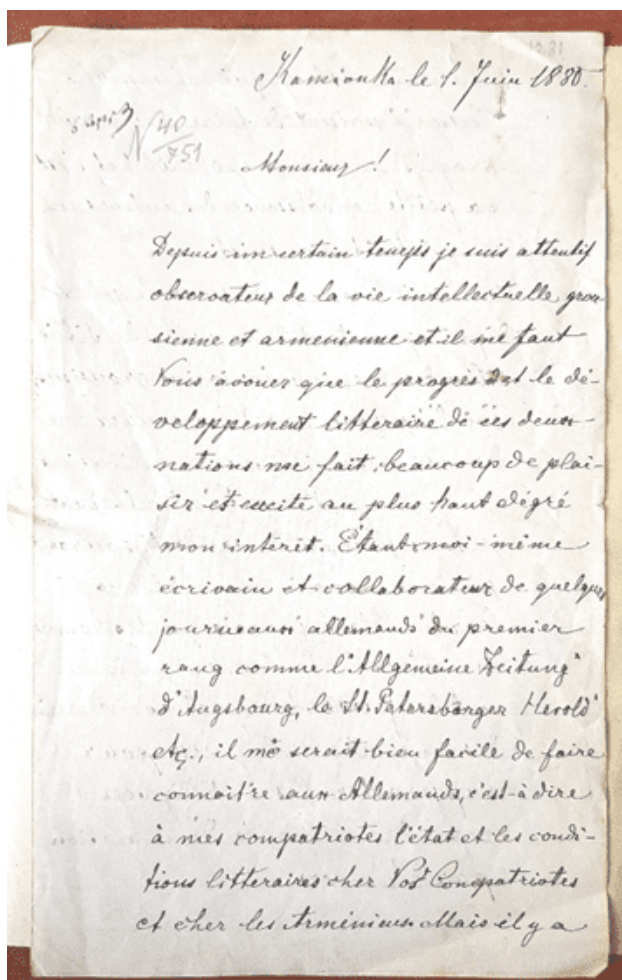 Kamionka le 1. Juin 1880.
N 40
751
Monsieur!
Depuis un certain temps je suis attentif
observateur de la vie intellectuelle grou-
sienne et armenienne et il me faut
Vous avouer que le progrès et le dé-
veloppement litteraire de ces deux
nations me fait beaucoup de plai-
sir et excite au plus haut dégré
mon interêt. Étant moi-même
écrivain et collaborateur de quelques
journeaux allemands du premier
rang comme l'Allgemeine Zeitung"
d'Augsbourg, le St. Petersburger Herold"
etc., il me serait bien facile de faire
connaître aux Allemands, c'est-à dire
à mes compatriotes l'état et les condi-
tions litteraires chez Vos Compatriotes
et chez les Arméniens. Mais il y a